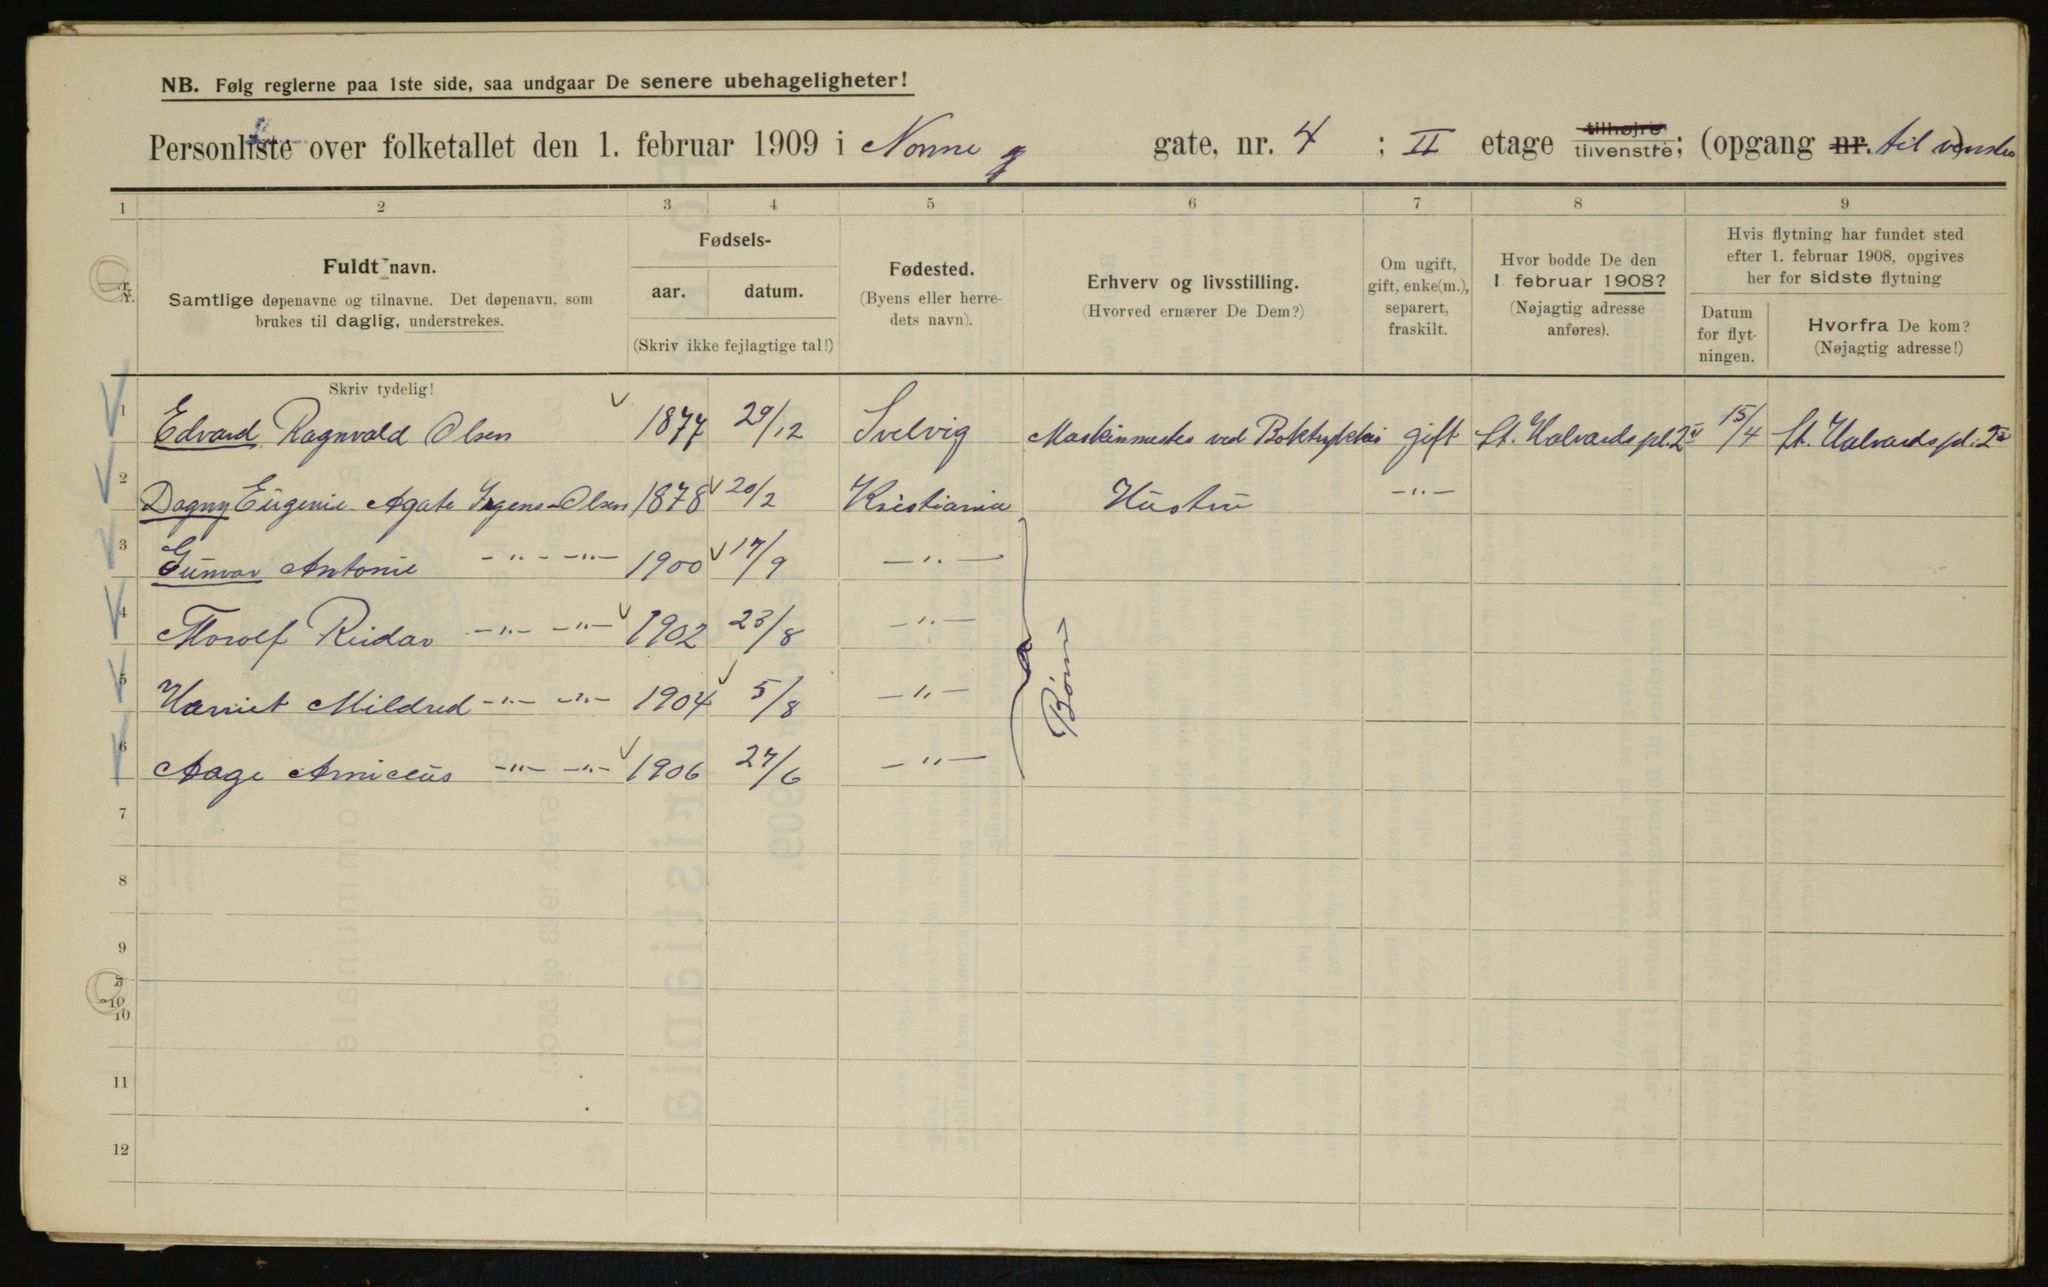 NB. Følg reglerne paa 1ste side, saa undgaar De senere ubehageligheter!
Personliste over folketallet den 1. februar 1909 i Nonne g gate, nr. 4 ; II etage tilhøjre tilvenstre; (opgang nr. til venstre)
1 2 3 4 5 6 7 8 9
Nr.
Fuldt navn.
Samtlige døpenavne og tilnavne. Det døpenavn, som
brukes til daglig, understrekes.
Skriv tydelig!
Fødsels-
aar. datum.
(Skriv ikke fejlagtige tal!)
Fødested.
(Byens eller herre-
dets navn).
Erhverv og livsstilling.
(Hvorved ernærer De Dem?)
Om ugift,
gift, enke(m.),
separert,
fraskilt.
Hvor bodde De den
1. februar 1908?
(Nøjagtig adresse
anføres).
Hvis flytning har fundet sted
efter 1. februar 1908, opgives
her for sidste flytning
Datum
for flyt-
ningen.
Hvorfra De kom?
(Nøjagtig adresse!)
1 Edvard Ragnvald Olsen 1877 29/12 Svelvig Maskinmester ved Boktrykkeri gift St. Halvards pl. 2 15/4 St. Halvards pl. 2
2 Dagny Eugenie Agate Irgens-Olsen 1878 20/2 Kristiania Hustru -"-
3 Gunvor Antonie -"- -"- 1900 17/9 -"-
4 Thorolf Reidar -"- -"- 1902 23/8 -"-
Børn
5 Harriet Mildred -"- -"- 1904 5/8 -"-
6 Aage Arniceus -"- -"- 1906 27/6 -"-
7
8
9
10
11
12